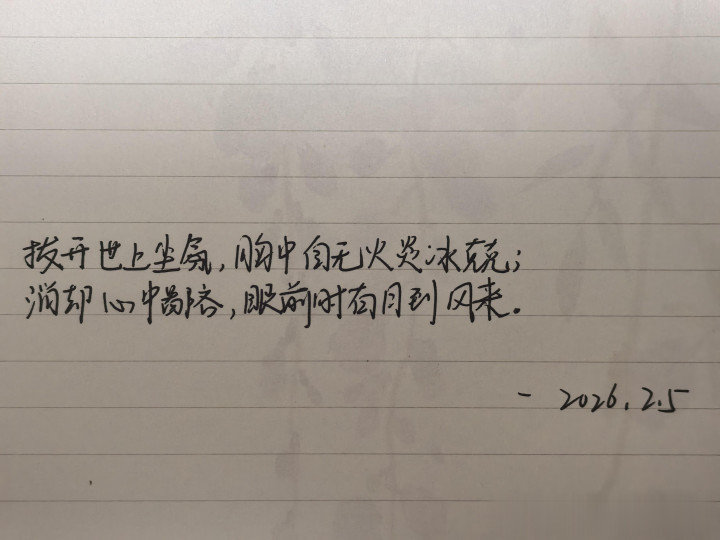 拨开世上尘氛，胸中自无火炎冰兢；
消却心中鄙吝，眼前时有月到风来。
- 2026.2.5